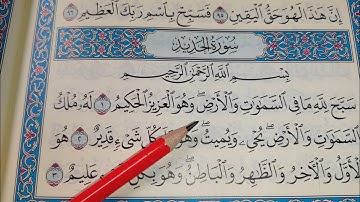 إِنَّ هَٰذَا لَهُوَ حَقُّ الْيَقِينِ ٩٥ فَسَبِّحْ بِاسْمِ رَبِّكَ الْعَظِيمِ ٩٦
سُورَةُ الْحَدِيدِ
بِسْمِ اللَّهِ الرَّحْمَٰنِ الرَّحِيمِ
سَبَّحَ لِلَّهِ مَا فِي السَّمَٰوَٰتِ وَالْأَرْضِ ۖ وَهُوَ الْعَزِيزُ الْحَكِيمُ ١ لَهُ مُلْكُ
السَّمَٰوَٰتِ وَالْأَرْضِ ۖ يُحْيِي وَيُمِيتُ ۖ وَهُوَ كُلِّ شَيْءٍ قَدِيرٌ ٢ هُوَ
الْأَوَّلُ وَالْآخِرُ وَالظَّاهِرُ وَالْبَاطِنُ ۖ وَهُوَ بِكُلِّ عَلِيمٌ ٣